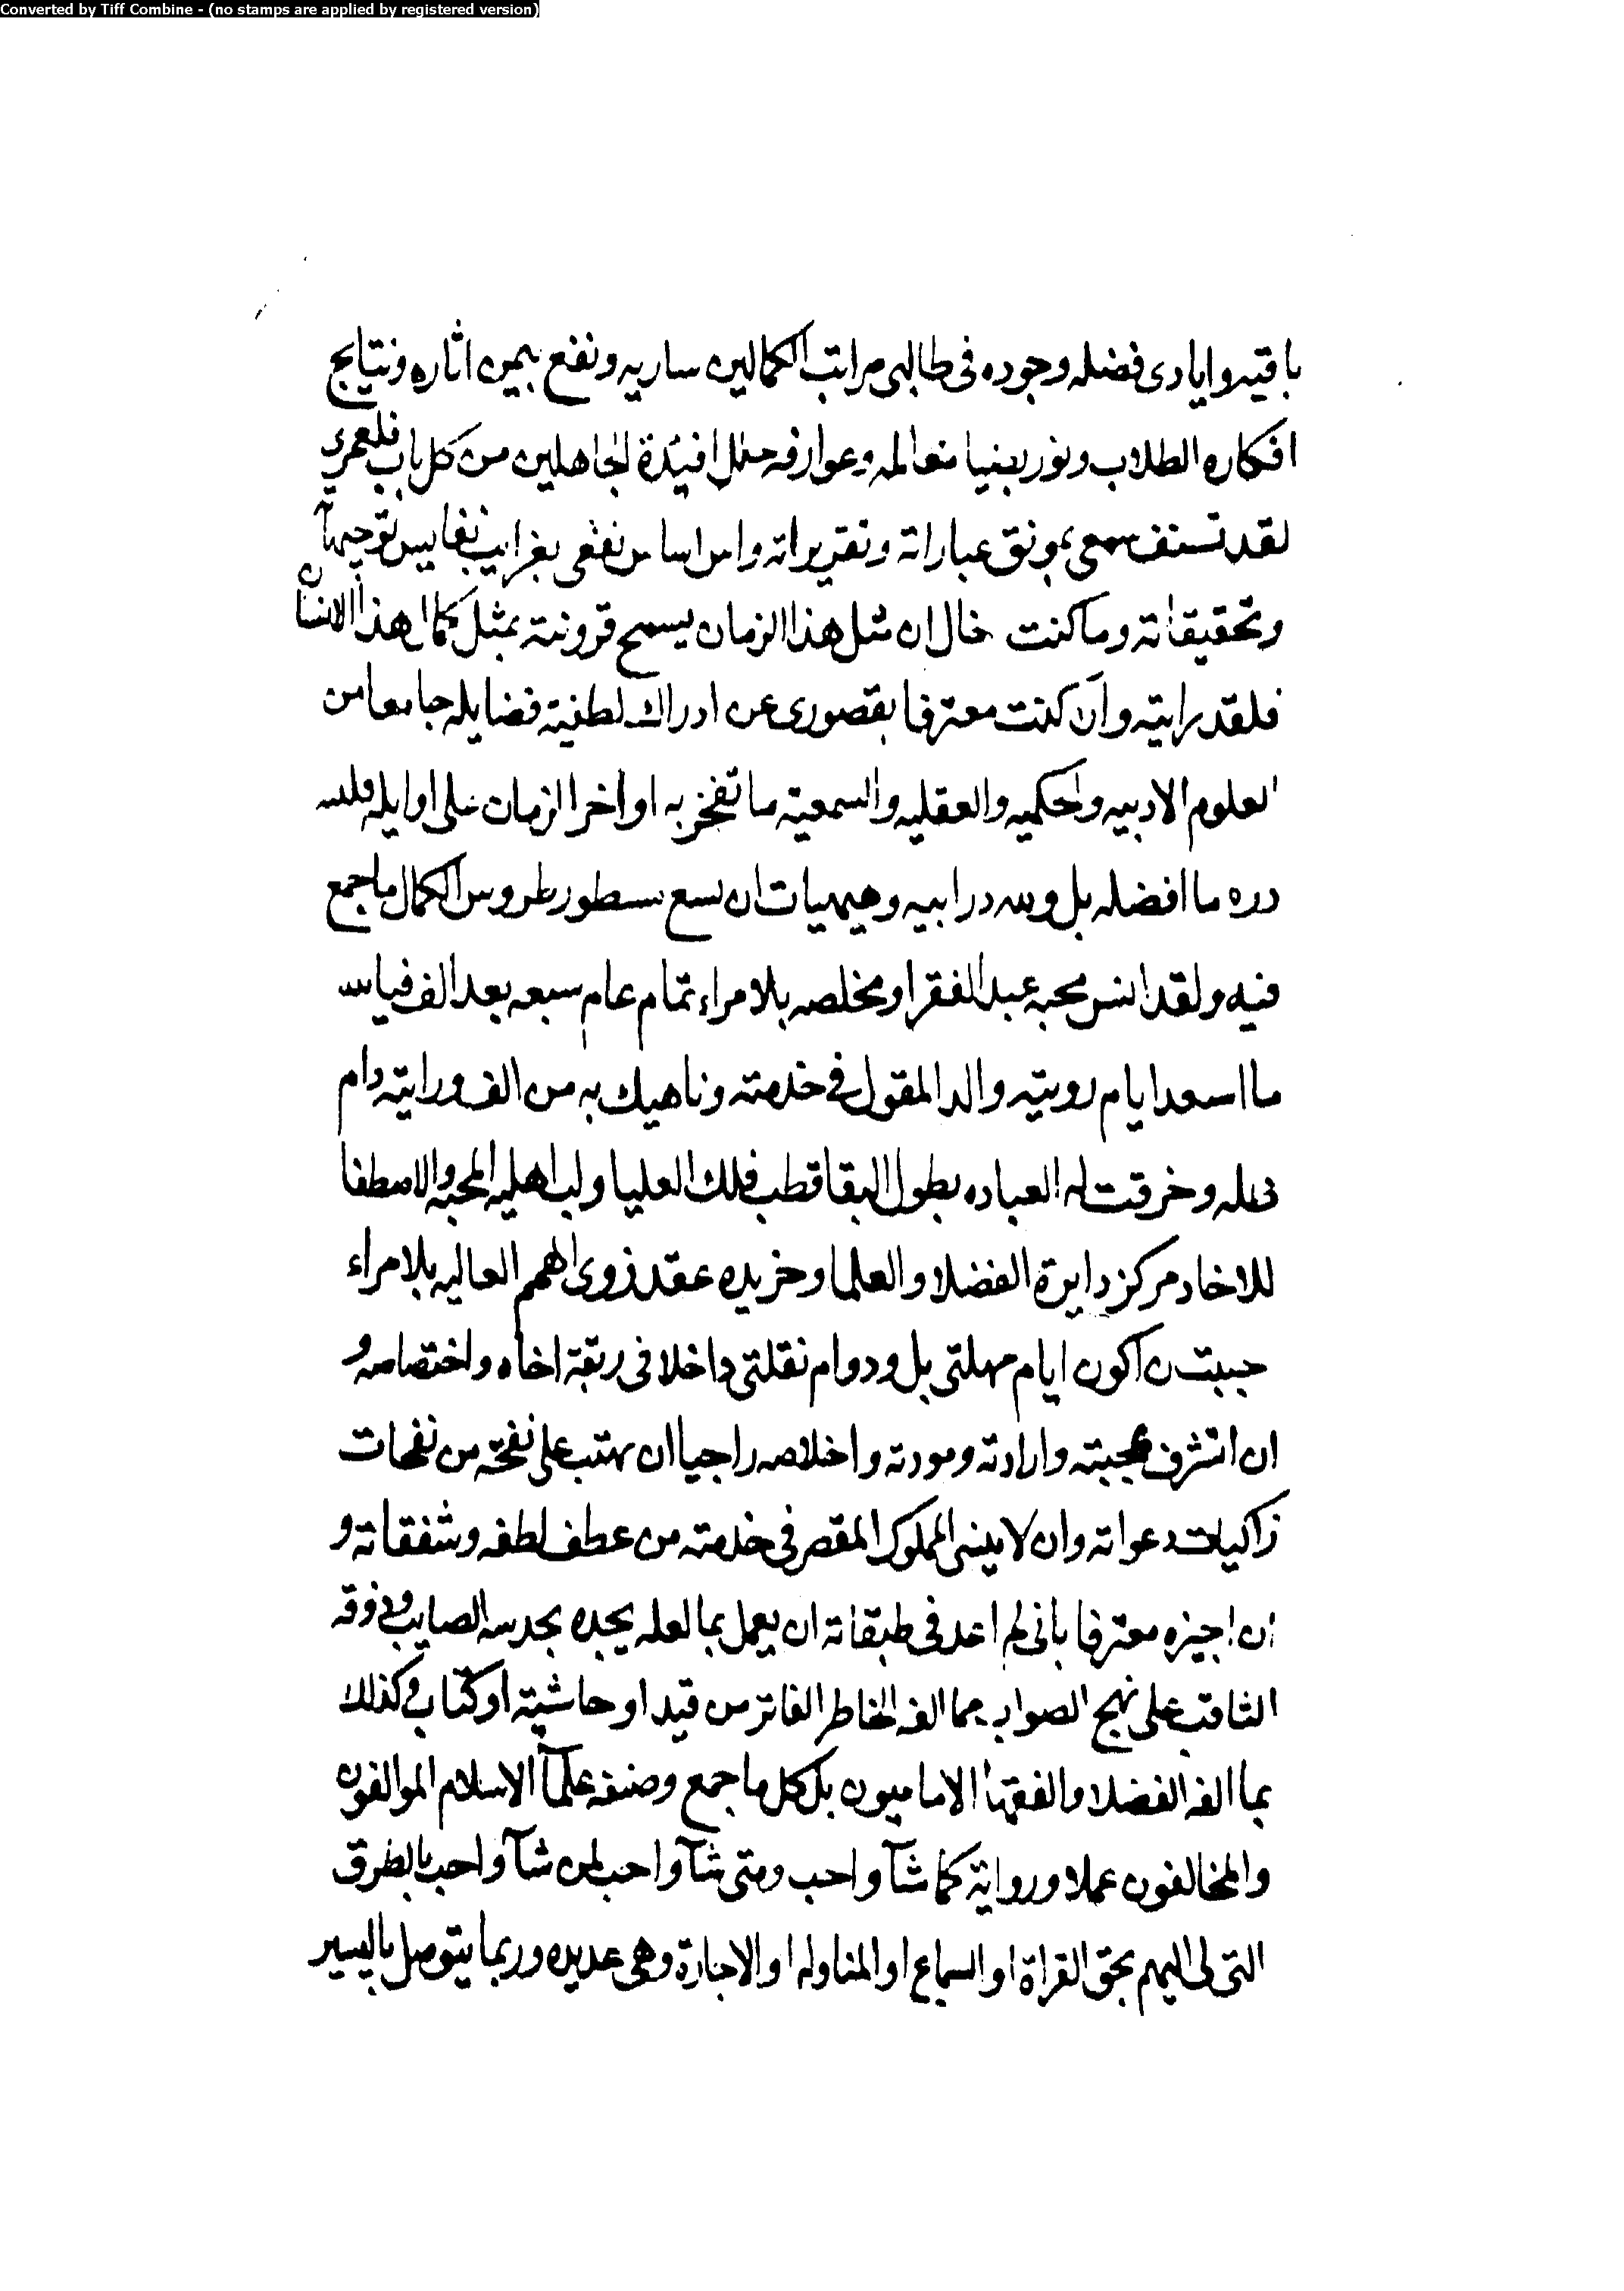 Converted by Tiff Combine - (no stamps are applied by registered version)
باقيه وايادى فضله وجوده فى طالبى مراتب الكمالين ساريه ونفع بيمن اثاره ونتايج
افكاره الطلاب ونور بضيا معالمه وعوارفه افئدة الجاهلين من كل باب فلعمرى
لقد تشنف سمعى بمونق عباراته وتقريراته نفسى بغرايب نفايس توجيهاته
وتحقيقاته وما كنت خال ان مثل هذا الزمان يسمح قرونته بمثل كمال هذا الانسان
فلقد رايته وان كنت معترفا بقصورى عن ادراك لطفية فضايله جامعا من
العلوم الادبيه والحكميه والعقليه والسمعية ما تفخر به اواخر الزمان على اوايله فلله
دره ما افضله بل ولله در ابيه وهيهات ان تسع سطور طروس الكمال ما جمع
فيه ولقد انس محبه عبد الفقرا ومخلصه بلا مراء تمام عام سبعه بعد الف فيالله
ما اسعد ايام رويته والد المقول فى خدمته وناهيك به من الف ورايته دام
وخرقت له العباده بطول البقا قطب فلك العليا ولب اهليه المحبه والاصطفا
للاخاد مركز دايرة الفضلا والعلما وخريده عقد ذوى الهمم العاليه بلا مراء
حببت ن اكون ايام مهلتى بل ودوام نقلتى داخلا فى ربقة اخاه واختصاصه و
ان اتشرف بمحبته وارادته ومودته واخلاصه راجيا ان يهتب على نفحة من نفحات
زاكيات دعواته وان لا ينسى المملوك المقصر فى خدمته من عطف لطفه وشفقاته و
ان اجيزه معترفا بانى لم اعد فى طبقاته ان يعمل بما لعله يجده بحدسه الصايب وذوقه
الثاقب على نهج الصواب مما الفه الخاطر الفاتر من قيد او حاشية او كتاب وكذلك
بما الفه الفضلا والفقهآ الاماميون بل كل ما جمع وصنفه علمآ الاسلام الموالفون
والمخالفون عملا ورواية كما شآ واحب ومتى شآ واحب لمن شآ واحب بالطرق
التى لى اليهم بحق القراة او السماع او المناوله او الاجازة وهى عديده وربما يتوصل باليسير